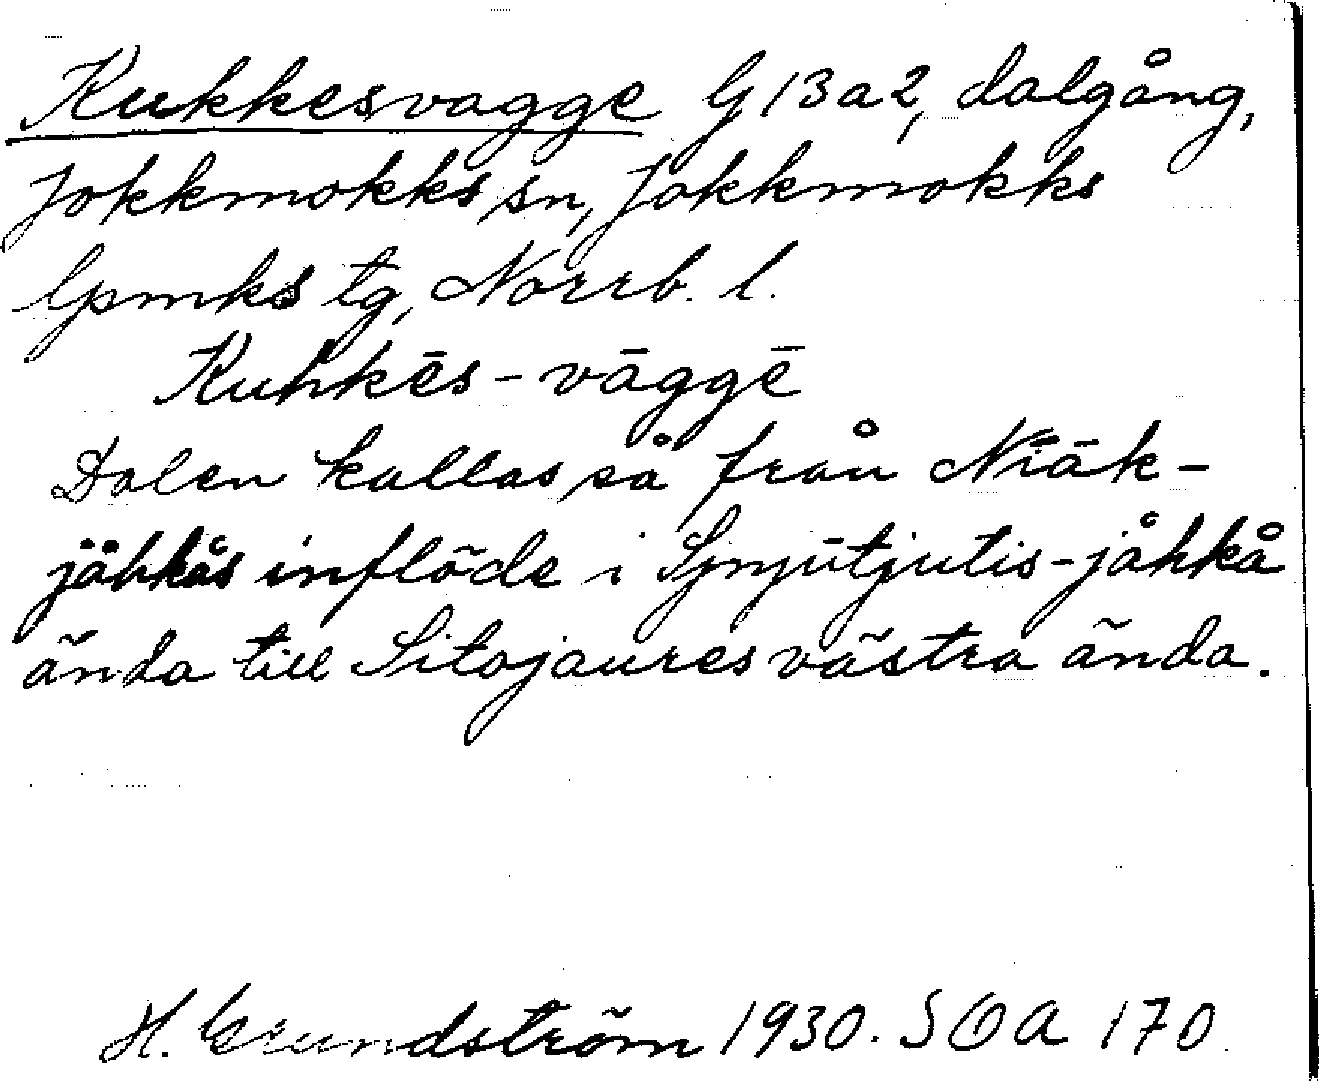 Kukkesvagge G 13 a 2, dalgång,
Jokkmokks sn, Jokkmokks
lpmks tg, Norrb. l.
Kuhkēs-vāggē
Dalen kallas så från Niāk-
jåhkås inflöde i Sjnjūtjutis-jåhkå
ända till Sitojaures västra ända.
H. Grundström 1930. SOA 170